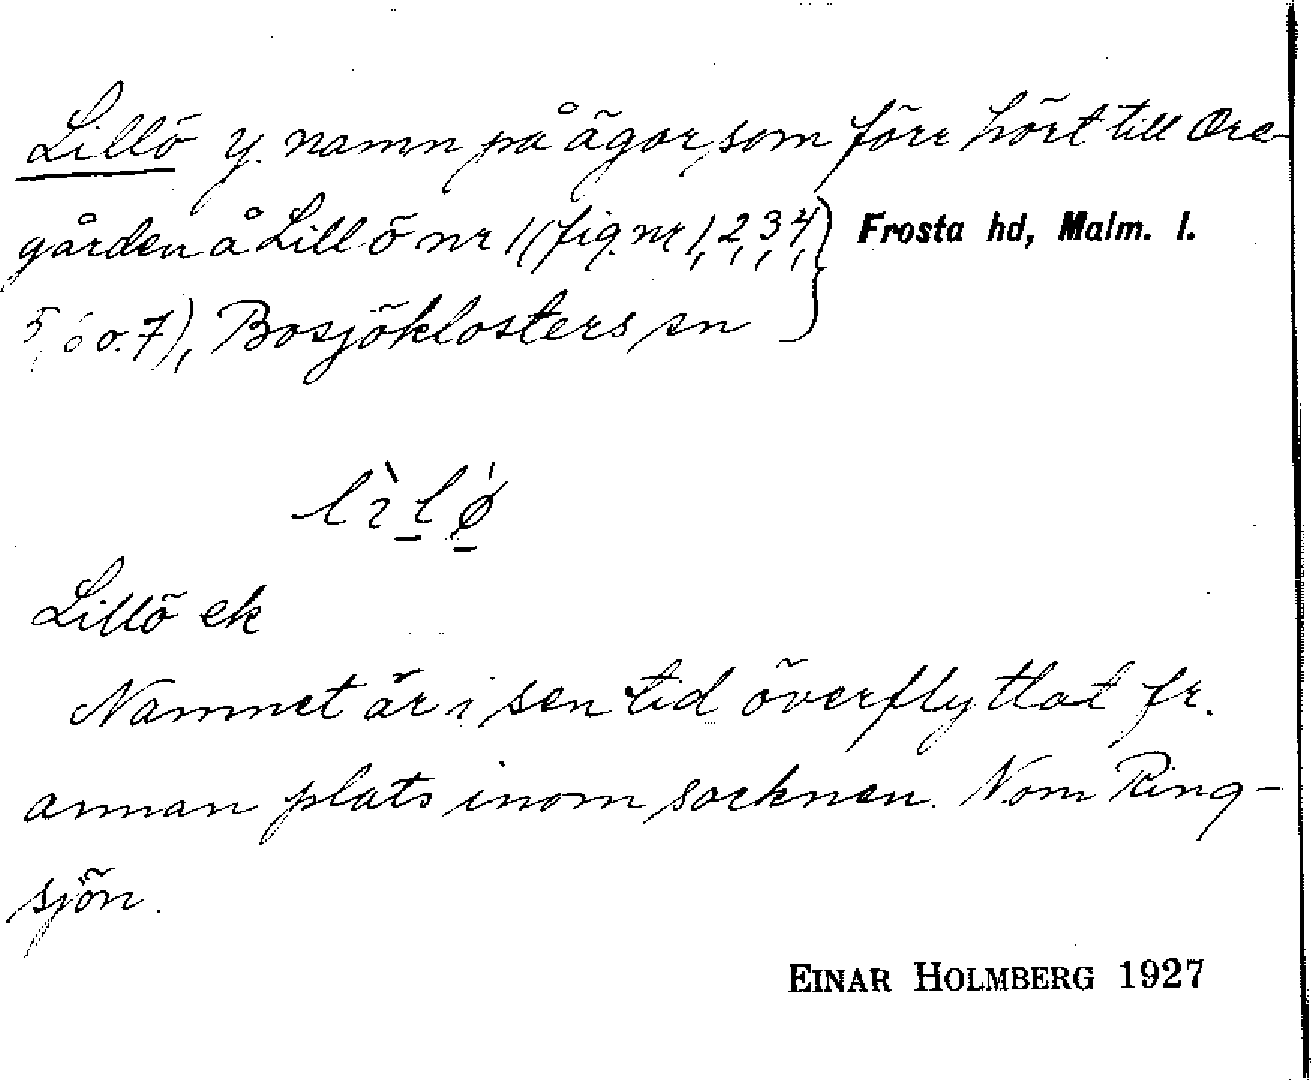 Lillö y. namn på ägor, som förr hört till Ore-
gården å Lillö nr 1 (fig. nr 1, 2, 3, 4, Frosta hd, Malm. l.
5, 6 o. 7), Bosjöklosters sn
lìlǿ
Lillö ek
Namnet är i sen tid överflyttat fr.
annan plats inom socknen. N om Ring-
sjön.
EINAR HOLMBERG 1927